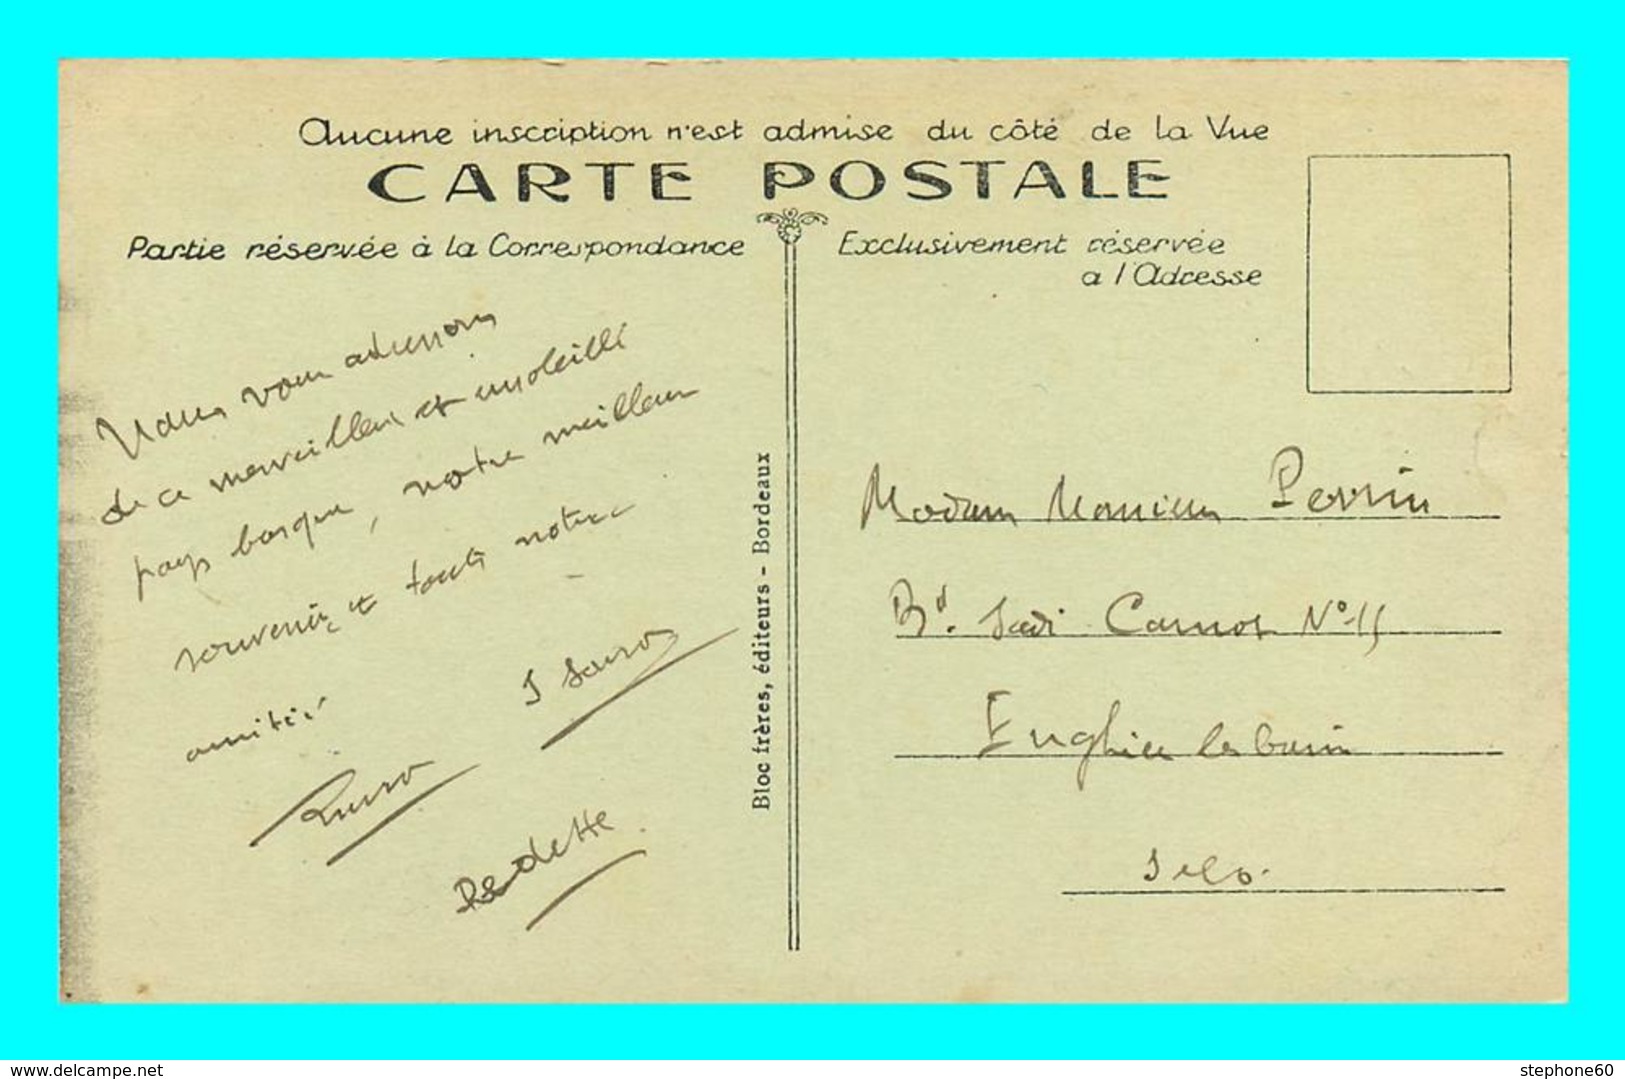 Aucune inscription n'est admise du côté de la Vue
CARTE POSTALE
Partie réservée à la Correspondance
Exclusivement réservée
a l'Adresse
Nous vous adressons
de ce merveilleux et ensoleillé
pays basque, notre meilleur
souvenir et toute notre
amitié
Bloc frères, éditeurs - Bordeaux
Madame Monsieur Perrin
Bd. Sadi Carnot N°-15
Enghien les bains
S et O.
www.delcampe.net
stephone60